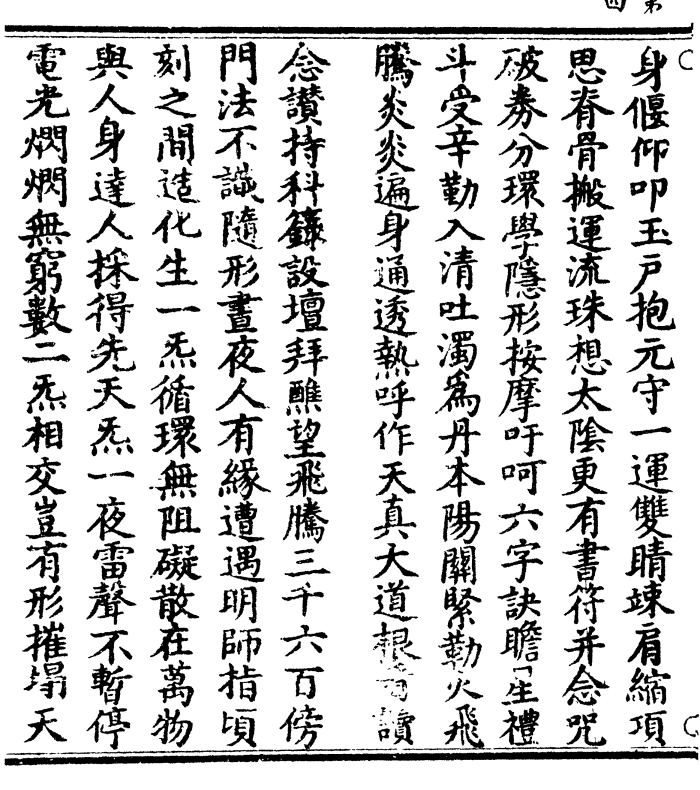 身偃仰叩玉戸抱元守一運雙睛竦肩縮項
思脊骨搬運流珠想太陰更有書符并念咒
破券分環學隱形按摩吁呵六字訣瞻星禮
斗受辛勤入清吐濁爲丹本陽關緊勒火飛
騰炎炎遍身通透熱呼作天真大道根 讀
念讃持科籙設壇拜醮望飛騰三千六百傍
門法不識隨形晝夜人有緣遭遇明師指頃
刻之間造化生一炁循環無阻礙散在萬物
與人身達人採得先天炁一夜雷聲不暫停
電光燜燜無窮數二炁相交豈有形摧塌天